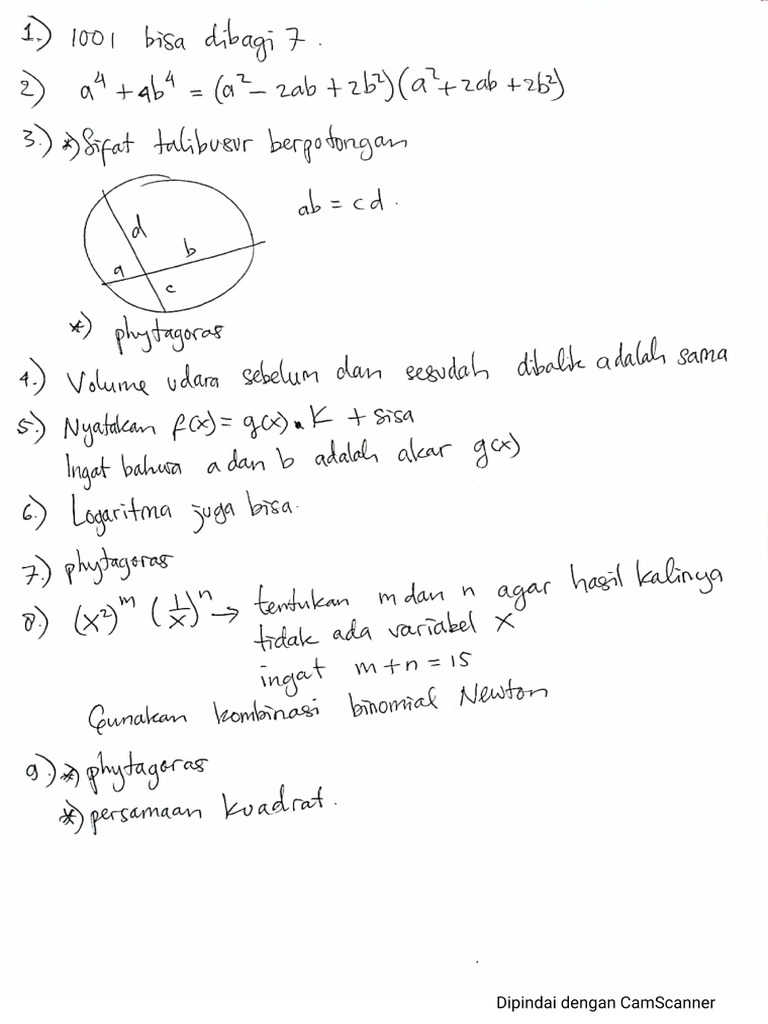 1.) 1001 bisa dibagi 7.
2) a⁴ + 4b⁴ = (a² − 2ab + 2b²)(a² + 2ab + 2b²)
3.) *) Sifat talibusur berpotongan
ab = cd.
d
b
a
c
*) phytagoras
4.) Volume udara sebelum dan sesudah dibalik adalah sama
5.) Nyatakan f(x) = g(x) • K + sisa
Ingat bahwa a dan b adalah akar g(x)
6.) Logaritma juga bisa.
7.) phytagoras
8.) (x²)ᵐ (1/x)ⁿ → tentukan m dan n agar hasil kalinya
tidak ada variabel x
ingat m + n = 15
Gunakan kombinasi binomial Newton
9.) *) phytagoras
*) persamaan kuadrat.
Dipindai dengan CamScanner